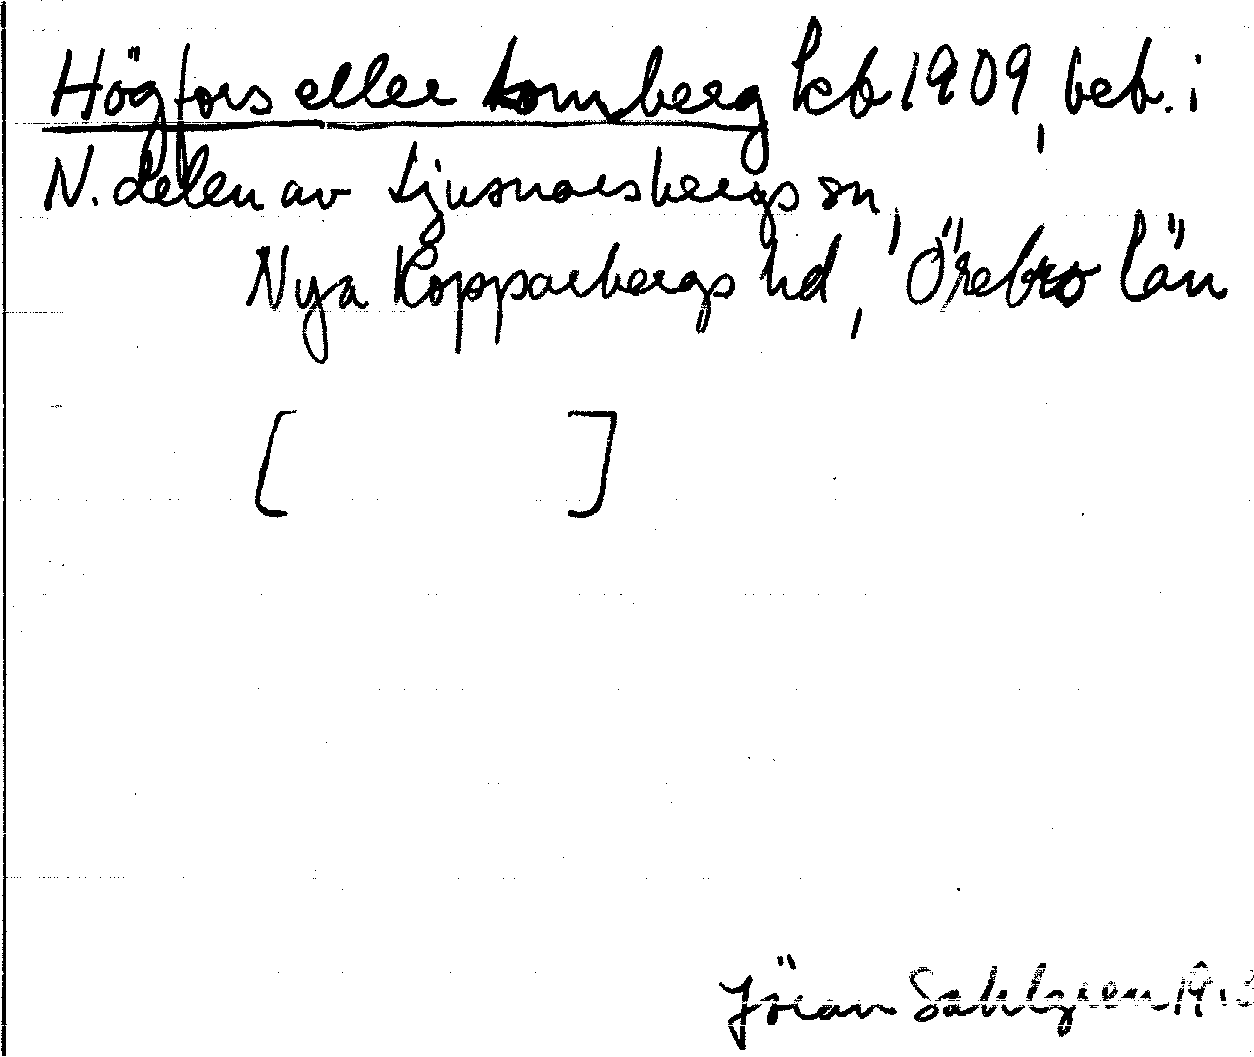 Högfors eller Lomberg kb 1909, beb. i
N. delen av Ljusnarsbergs sn,
Nya Kopparbergs hd, Örebro län
[ ]
Jöran Sahlgren